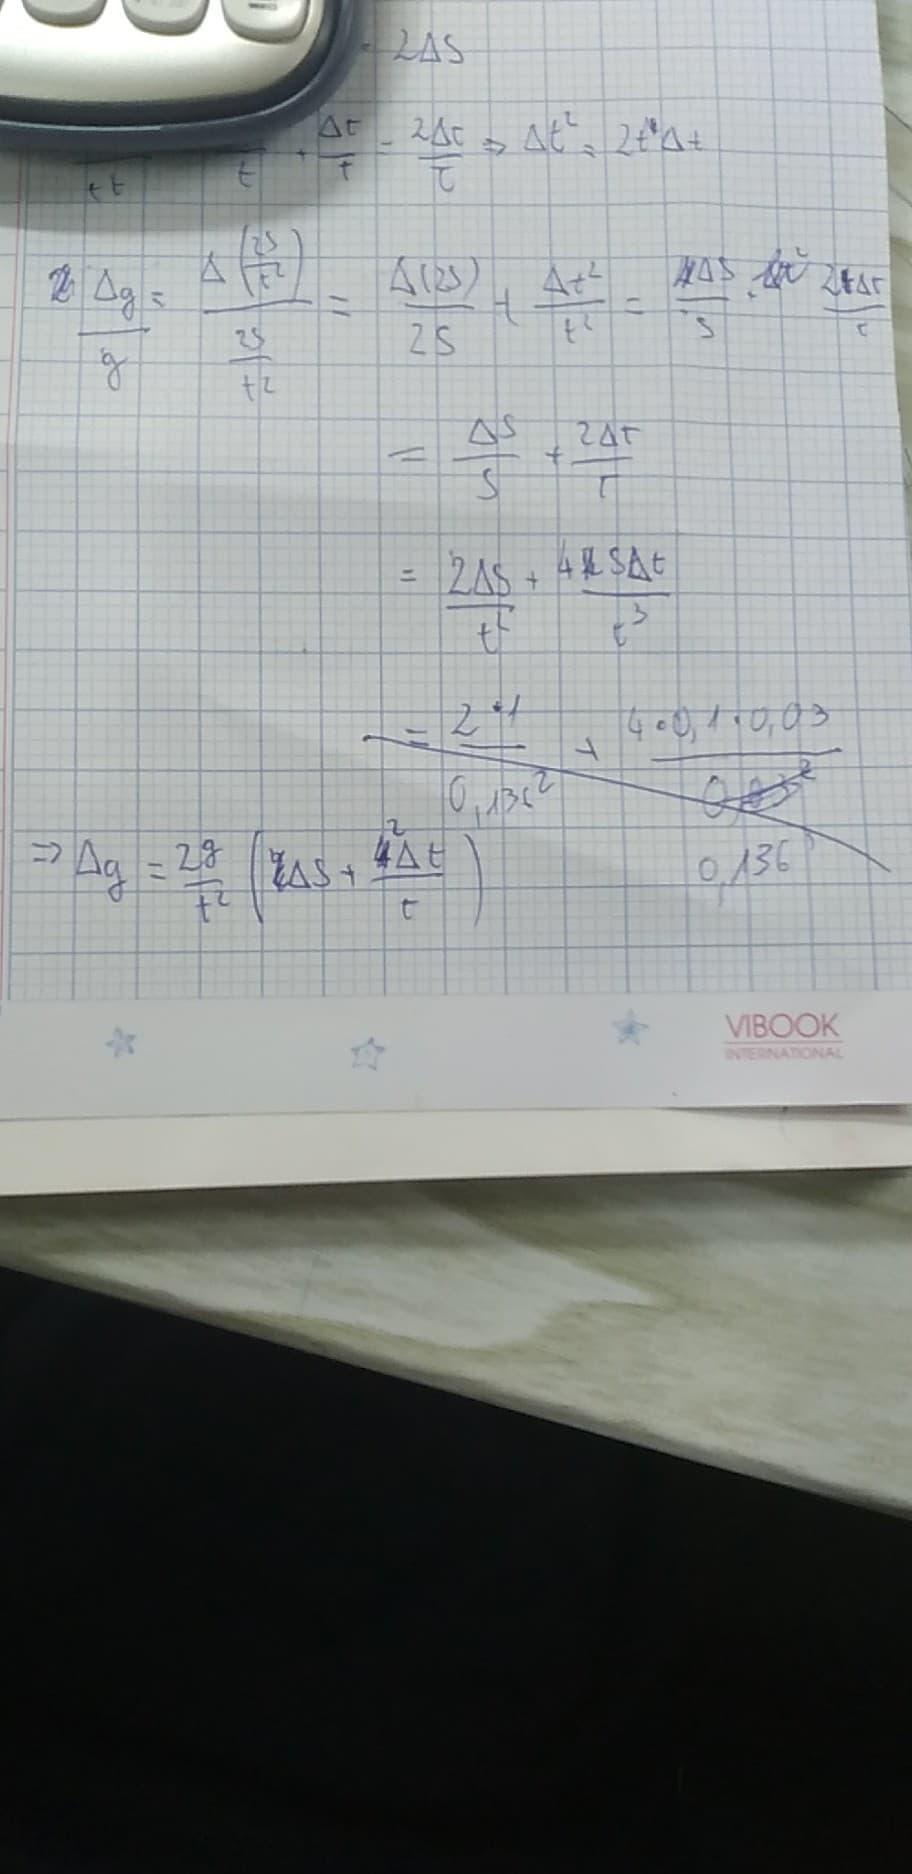 = 2ΔS
tt t + Δt/t = 2Δt/t ⇒ Δt² = 2tΔt
Δg/g = Δ(2S/t²)/(2S/t²) = Δ(2S)/2S + Δt²/t² = ΔS/S + 2Δt/t
= ΔS/S + 2Δt/t
= 2ΔS/t² + 4SΔt/t³
= 2·1/0,136² + 4·0,1·0,03/0,136
⇒ Δg = 2g/t² (ΔS + 2Δt/t)
VIBOOK
INTERNATIONAL